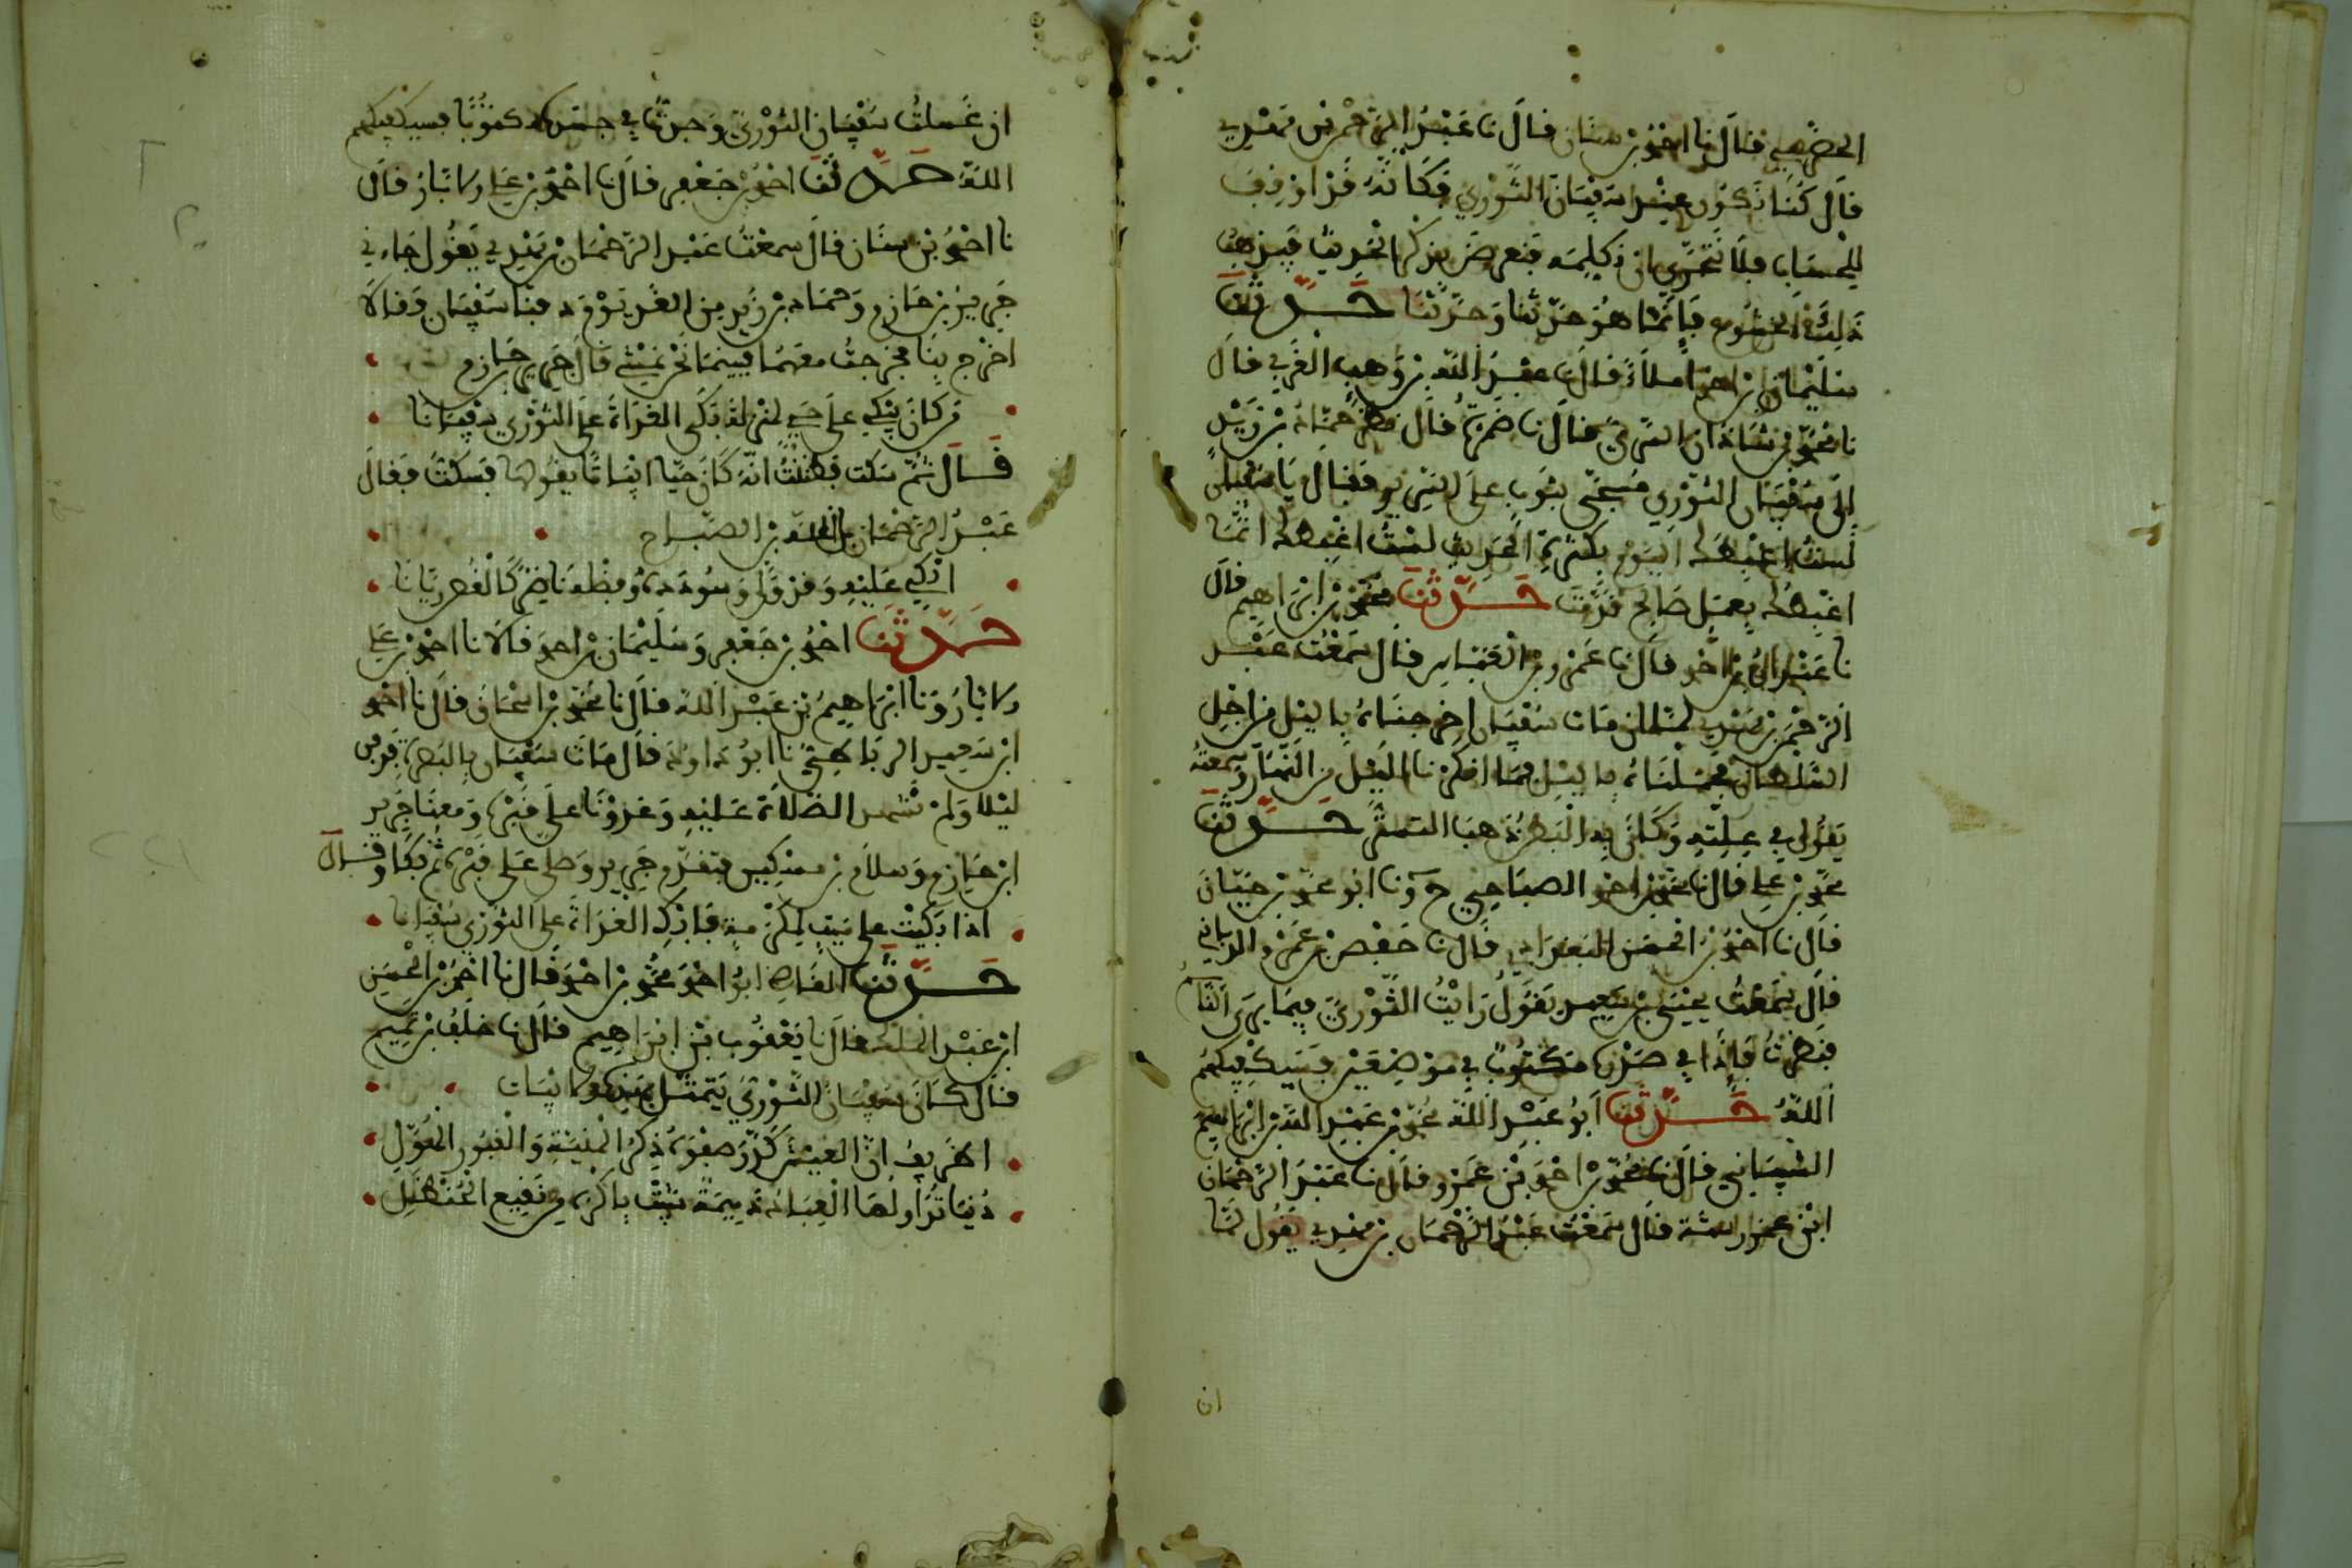 الحضرمي قال نا احمد بن سنان قال نا عبد الرحمن بن مهدي
قال كنا نكون عند سفيان الثوري فكانه قد اوقف
للحساب فلا نجترئ ان نكلمه فنعرض بذكر الحديث فيذهب
ذلك الخشوع فانما هو حدثنا وحدثنا حدثنا
سليمان بن احمد املاء قال نا عبد الله بن وهب الغزي قال
نا محمد بن ابي السري قال نا ضمرة قال نظر حماد بن زيد
الى سفيان الثوري مسجى بثوب على السرير فقال يا سفيان
لست اغبطك اليوم بكثرة الحديث لست اغبطك انما
اغبطك بعمل صالح قدمت حدثنا محمد بن ابراهيم قال
نا عبد الله بن احمد قال نا عمرو بن العباس قال سمعت عبد
الرحمن بن مهدي لما ان مات سفيان اخرجناه بالليل من اجل
السلطان فحملناه بالليل فما انكرنا الليل من النهار وسمعته
يقول في علته وكانى به البطن ذهب التستر حدثنا
محمد بن علي قال نا محمد بن احمد الصباحي ح ونا ابو محمد بن حيان
قال نا احمد بن الحسن البغدادي قال نا حفص بن عمرو الربالي
قال سمعت يحيى بن سعيد يقول رايت الثوري فيما يرى النائم
فنظرت فاذا في صدره مكتوب في موضعين فسيكفيكهم
الله حدثنا ابو عبد الله محمد بن عبد الله بن ابراهيم
الشيباني قال نا محمد بن احمد بن عمرو قال نا عبد الرحمان
ابن عمر رسته قال سمعت عبد الرحمان بن مهدي يقول لما
ان
ان غسلت سفيان الثوري وجدت في جسده مكتوبا فسيكفيكهم
الله حدثنا احمد بن جعفر قال نا احمد بن علي الابار قال
نا احمد بن سنان قال سمعت عبد الرحمان بن مهدي يقول جاءني
جرير بن حازم وحماد بن زيد من الغد يوم دفنا سفيان فقالا
اخرج بنا فخرجت معهما فبينما نحن نمشي قال جرير بن حازم
من كان يبكي على حي لمنزلة بكى الغداة على الثوري سفيانا
قال ثم سكت فظننت انه كان هيا ابياتا يقولها فسكت فقال
عبد الرحمان بن عبد الله بن الصباح
ابكي عليه وقد ولى وسودده وفضله ناضر كالغصن ريانا
حدثنا احمد بن جعفر وسليمان بن احمد قالا نا احمد بن علي
الابار ونا ابراهيم بن عبد الله قال نا محمد بن اسحاق قال نا احمد
ابن سعيد الرباطي نا ابو داود قال مات سفيان بالبصرة فدفن
ليلا ولم نشهد الصلاة عليه وغدونا على قبره ومعنا جرير
ابن حازم وسلام بن مسكين فتقدم جرير وصلى على قبره ثم بكا وقال
اذا بكيت على ميت لمكرمة فابك الغداة على الثوري سفيانا
حدثنا القاضي ابو احمد محمد بن احمد قال نا احمد بن الحسن
ابن عبد الملك قال نا يعقوب بن ابراهيم قال نا خلف بن تميم
قال كان سفيان الثوري يتمثل بهذه الابيات
اظريف ان العيش كدر صفوه ذكر المنية والقبور الهول
دنيا تداولها العباد ذميمة شيبت باكره من نقيع الحنظل